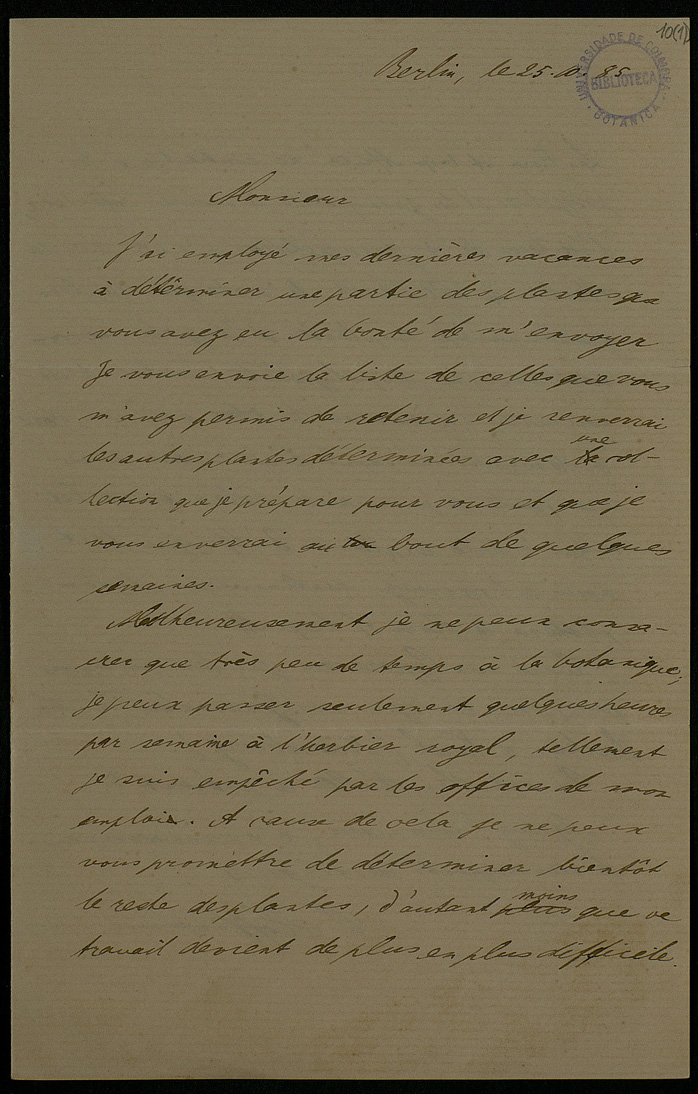 10(1)
UNIVERSIDADE DE COIMBRA
BIBLIOTECA
BOTANICA
Berlin, le 25.10.85
Monsieur
J'ai employé mes dernières vacances
à détérminer une partie des plantes que
vous avez eu la bonté de m'envoyer
Je vous envoie la liste de celles que vous
m'avez permis de retenir et je renverrai
les autres plantes détérminées avec une col-
lection que je prépare pour vous et que je
vous enverrai au bout de quelques
semaines.
Malheureusement je ne peux consa-
crer que très peu de temps à la botanique;
je peux passer seulement quelques heures
par semaine à l'herbier royal, tellement
je suis empêché par les offices de mon
emploi. A cause de cela je ne peux
vous promettre de déterminer bientôt
le reste des plantes, d'autant moins que ce
travail devient de plus en plus difficile.